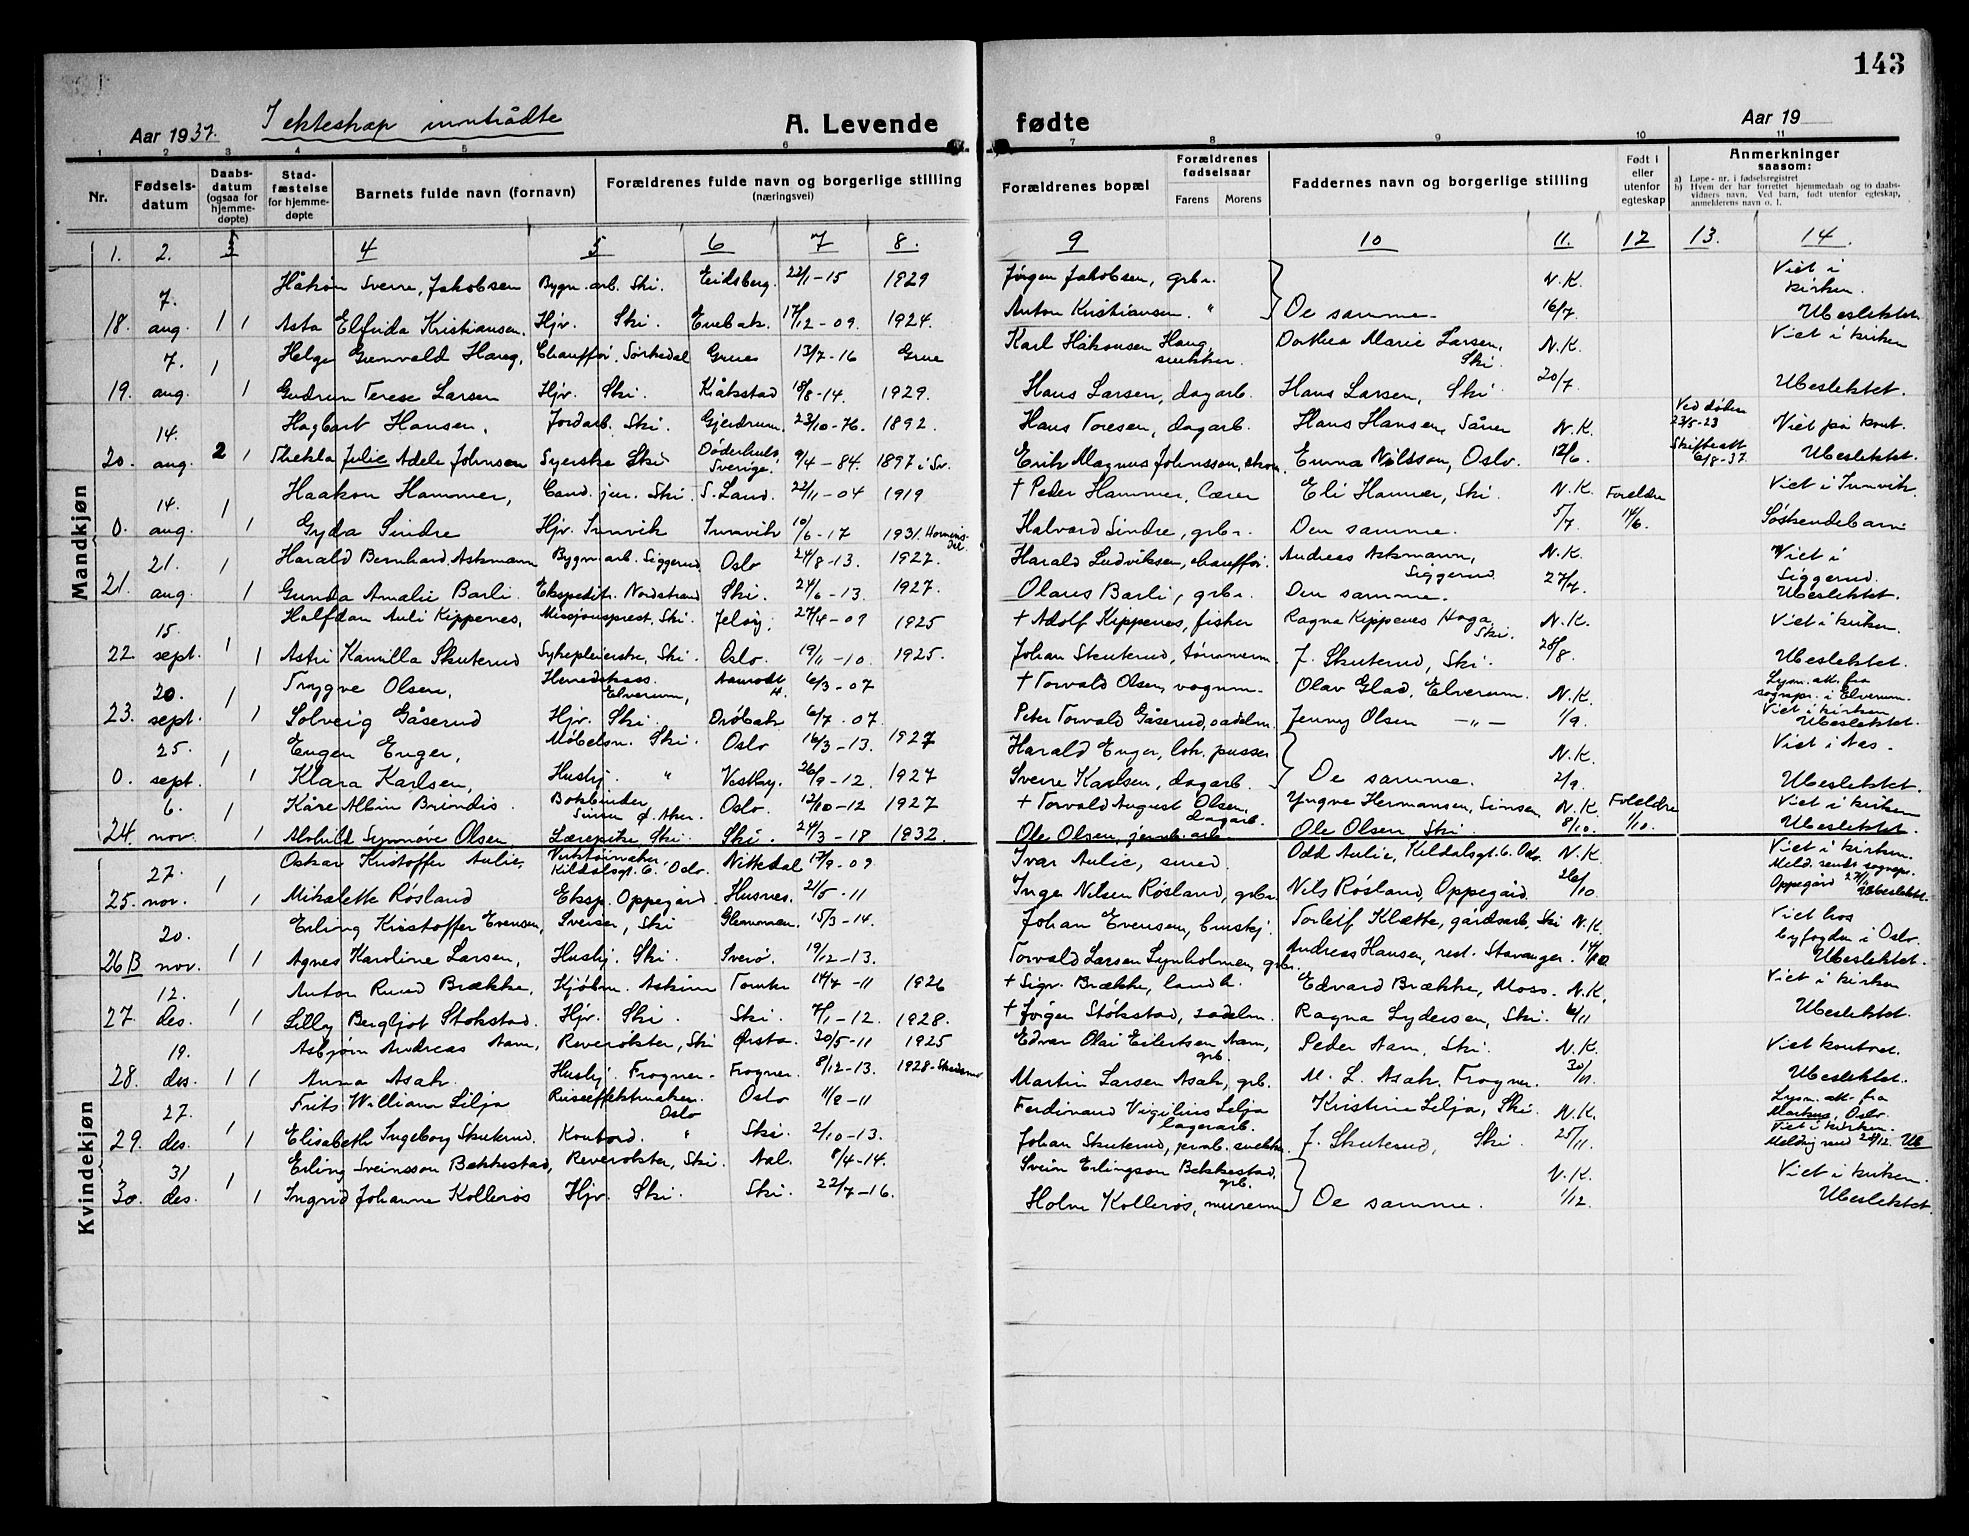 143
Aar 1937. I ekteskap inntrådte A. Levende fødte Aar 19
1 2 3 4 5 6 7 8 9 10 11
Nr. Fødsels-datum Daabs-datum (ogsaa for hjemme-døpte) Stad-fæstelse for hjemme-døpte Barnets fulde navn (fornavn) Forældrenes fulde navn og borgerlige stilling (næringsvei) Forældrenes bopæl Forældrenes fødselsaar Farens Morens Faddernes navn og borgerlige stilling Født i eller utenfor egteskap Anmerkninger saasom:
a) Løpe-nr. i fødselsregistret
b) Hvem der har forrettet hjemmedaab og to daabsvidners navn. Ved barn, født utenfor egteskap, anmelderens navn o. l.
1. 2. 3 4 5 6 7 8. 9 10 11. 12 13. 14.
7. Håkon Sverre Jakobsen Bygn. arb. Ski. Eidsberg. 22/1-15 1929 Jørgen Jakobsen, grbr. N.K. Viet i kirken.
18. aug. 1 1 Asta Elfrida Kristiansen. Hjv. Ski. Enebak. 17/12-09. 1924. Anton Kristiansen. " De samme. 16/7. Ubeslektet.
7. 1 Helge Gunvald Haug, Chauffør. Sørkedal Grue 13/7-16 Grue Karl Håkonsen Haug, snekker. Dorthea Marie Larsen, Ski. N.K. Viet i kirken
19. aug. 1 Gudrun Terese Larsen Hjv. Ski. Kråkstad 18/8-14. 1929. Hans Larsen, dagarb. Hans Larsen, Ski 20/7. Ubeslektet.
14. Hagbart Hansen, Jordarb. Ski. Gjerdrum. 23/10-76. 1892. Hans Toresen, dagarb. Hans Hansen, Såner N.K. Ved døden 23/5-23 Viet på kont.
20. aug. 2 1 Thekla Julie Adele Johnsen Syerske Ski Sverige. 9/4-84. 1897 i Sv. Erik Magnus Johnsson, Emma Nilsson, Oslo. 12/6. Skifteatt 6/8-37. Ubeslektet.
14. 1 Haakon Hammer, Cand. jur. Ski. S. Land. 22/11-04 1919 † Peder Hammer, Eli Hammer, Ski. N.K. Foreldre Viet i Innvik.
0. aug. 1 Gyda Sindre Hjv. Innvik Innvik 10/6-17 1931. Hornindal. Halvard Sindre, grbr. Den samme. 5/7. 14/6. Søskendebarn
21. 1 Harald Bernhard Askmann Bygn. arb. Siggerud Oslo 24/8-13. 1927. Harald Ludviksen, chauffør. Andreas Askmann, Siggerud N.K. Viet i
21. aug. 1 Gunda Amalie Barli. Ekspeditr. Nordstrand Ski. 24/6-13. 1927. Olaus Barli, grbr. Den samme. 27/7. Siggerud. Ubeslektet.
15. 1 Halfdan Auli Kippenes, Missjonsprest, Ski. Jeløy. 27/4-09 1925 † Adolf Kippenes, fisker Ragna Kippenes Haga Ski. N.K. Viet i kirken.
22. sept. 1 Astri Kamilla Skuterud Sykepleierske, Ski. Oslo. 19/11-10. 1925. Johan Skuterud, tømmerm. J. Skuterud, Ski. 28/8. Ubeslektet.
20. 1 Trygve Olsen, Herredskass. Elverum, 6/3-07 † Torvald Olsen, vognm. Olav Glad, Elverum. N.K. Lysn. att. fra sognepr. i Elverum.
23. sept. 1 Solveig Gåserud Hjv. Ski. Drøbak 6/7-07. Peter Torvald Gåserud, sadelm. Jenny Olsen -"- 1/9. Viet i kirken Ubeslektet.
25. 1 Eugen Enger, Møbelsn. Ski. Oslo 16/3-13. 1927 Harald Enger, lok. pusser N.K. Viet i Aas.
0. sept. 1 Klara Karlsen, Hushj. " Vestby. 26/9-12. 1927 Sverre Karlsen, dagarb. De samme. 2/9. Ubeslektet.
6. 1 Kåre Albin Brindis. Bokbinder Sinsen Ø. Aker. Oslo. 12/10-12 1927 † Torvald August Olsen, dagarb. Yngve Hermansen, Sinsen N.K. Foreldre Viet i kirken
24. nov. 1 Alvhild Synnøve Olsen. Lærepike, Ski. Ski. 24/3-18 1932. Ole Olsen, jernb. arb. Ole Olsen Ski. 8/10. 1/10. Ubeslektet.
27. 1 Oskar Kristoffer Aulie, Verktøimaker, Kildalsgt. 6. Oslo. Nittedal 17/9-09. Ivar Aulie, smed. Odd Aulie, Kildalsgt. 6. Oslo. N.K. Viet i kirken. Meld. sendt sognepr.
25. nov. 1 Mikalette Røsland Eksp. Oppegård Husnes. 21/5-11 Inge Nilsen Røsland, grbr. Nils Røsland, Oppegård 26/10. Oppegård 27/11 Ubeslektet.
20. 1 Erling Kristoffer Evensen, Sveiser, Ski Glemmen. 15/3-14. Johan Evensen, Torleif Klætte, gårdsarb, Ski N.K. Viet hos byfogden i Oslo.
26B nov. 1 Agnes Karoline Larsen, Hushj. Ski. 19/12-13. Torvald Larsen Lynholmen, grbr. Andreas Hansen, rest. Stavanger. 14/10. Ubeslektet.
12. 1 Anton Ruud Brække, Kjøbm. Askim Tomter 14/7-11 1926 † Sigv. Brække, landh. Edvard Brække, Moss. N.K. Viet i kirken
27. des. 1 Lilly Bergljot Stokstad. Hjv. Ski. Ski. 1-12. 1928. † Jørgen Stokstad, sadelm. Ragna Lydersen, Ski. 6/11 Ubeslektet.
19. Asbjørn Andreas Aam, Reverøkter, Ski Ørsta. 30/5-11 1925 Edvar Olai Eilertsen Aam, grb. Peder Aam, Ski. N.K. Viet kontoret.
28. des. 1 1 Anna Asak. Hushj. Frogner. Frogner. 8/12-13. 1928-Skedsmo Martin Larsen Asak, grb. M. L. Asak, Frogner. 30/11. Ubeslektet.
27. 1 Frits William Lilja Oslo Oslo 11/8-11 Ferdinand Vigilius Lilja lagerarb. Kristine Lilja, Ski. N.K. Lysn. att. fra Markus, Oslo.
29. des. 1 Elisabeth Ingeborg Skuterud. Kontord. " Ski. 2/10-13. Johan Skuterud, jernb. snekker. J. Skuterud, Ski. 25/11. Viet i kirken. 28/12. Ub
31 1 Erling Sveinsson Bekkestad, Reverøkter, Ski. Aal. 8/4-14. Svein Erlingson Bekkestad, grb. N.K. Viet i kirken.
30. des. 1 Ingrid Johanne Kollerøs Hjv. Ski. Ski. 22/7-16. Holm Kollerøs, murerm De samme. 1/12. Ubeslektet.
Mandkjøn
Kvindekjøn